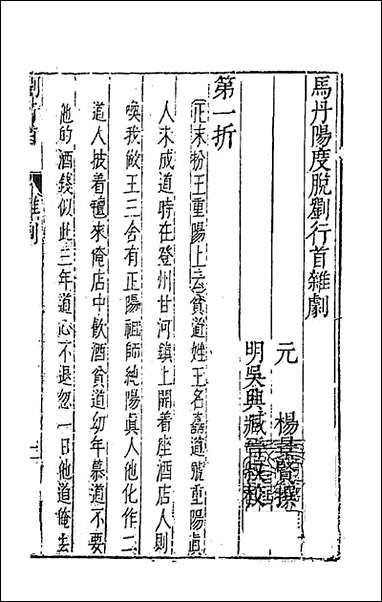 馬丹陽度脫劉行首雜劇
元 楊景賢撰
明吳興臧晉叔校
第一折
正末扮王重陽上云貧道姓王名嚞道號重陽眞
人未成道時在登州甘河鎭上開着座酒店人則
喚我做王三舍有正陽祖師純陽眞人他化作二
道人披着氊來俺店中飲酒貧道幼年慕道不要
他的酒錢似此三年道心不退忽一日他道俺去
劉行首 雜劇 一